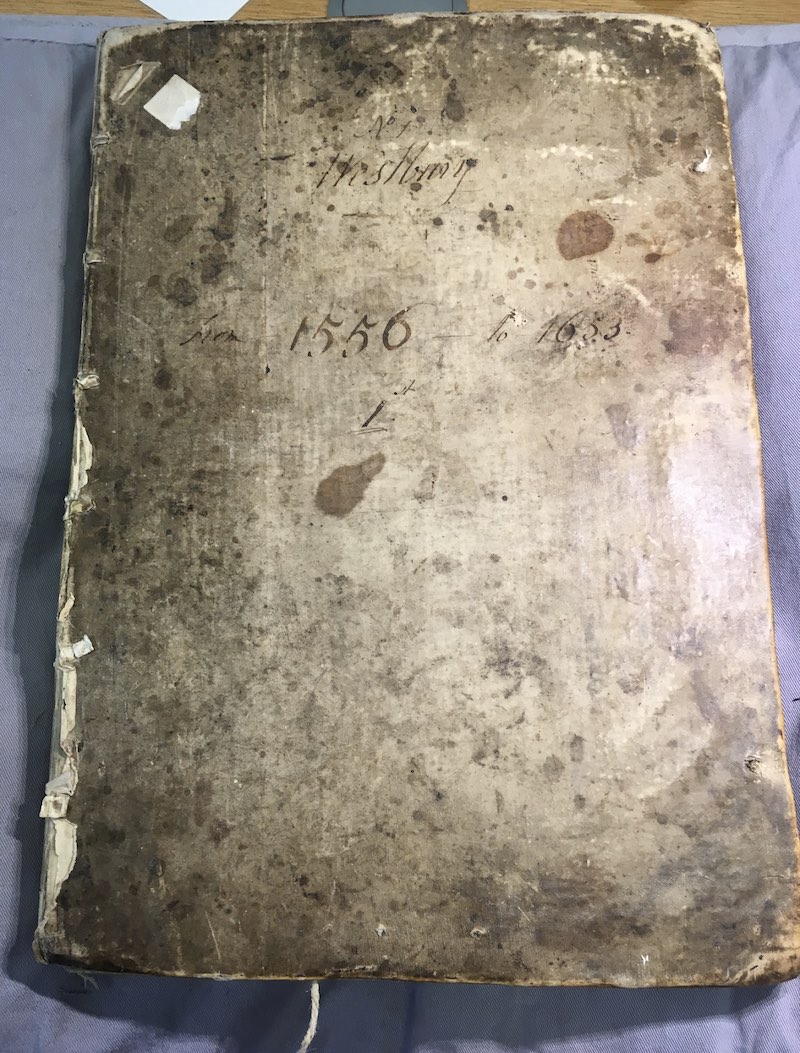 No 1
Westbury
from 1556 — to 1653
1st